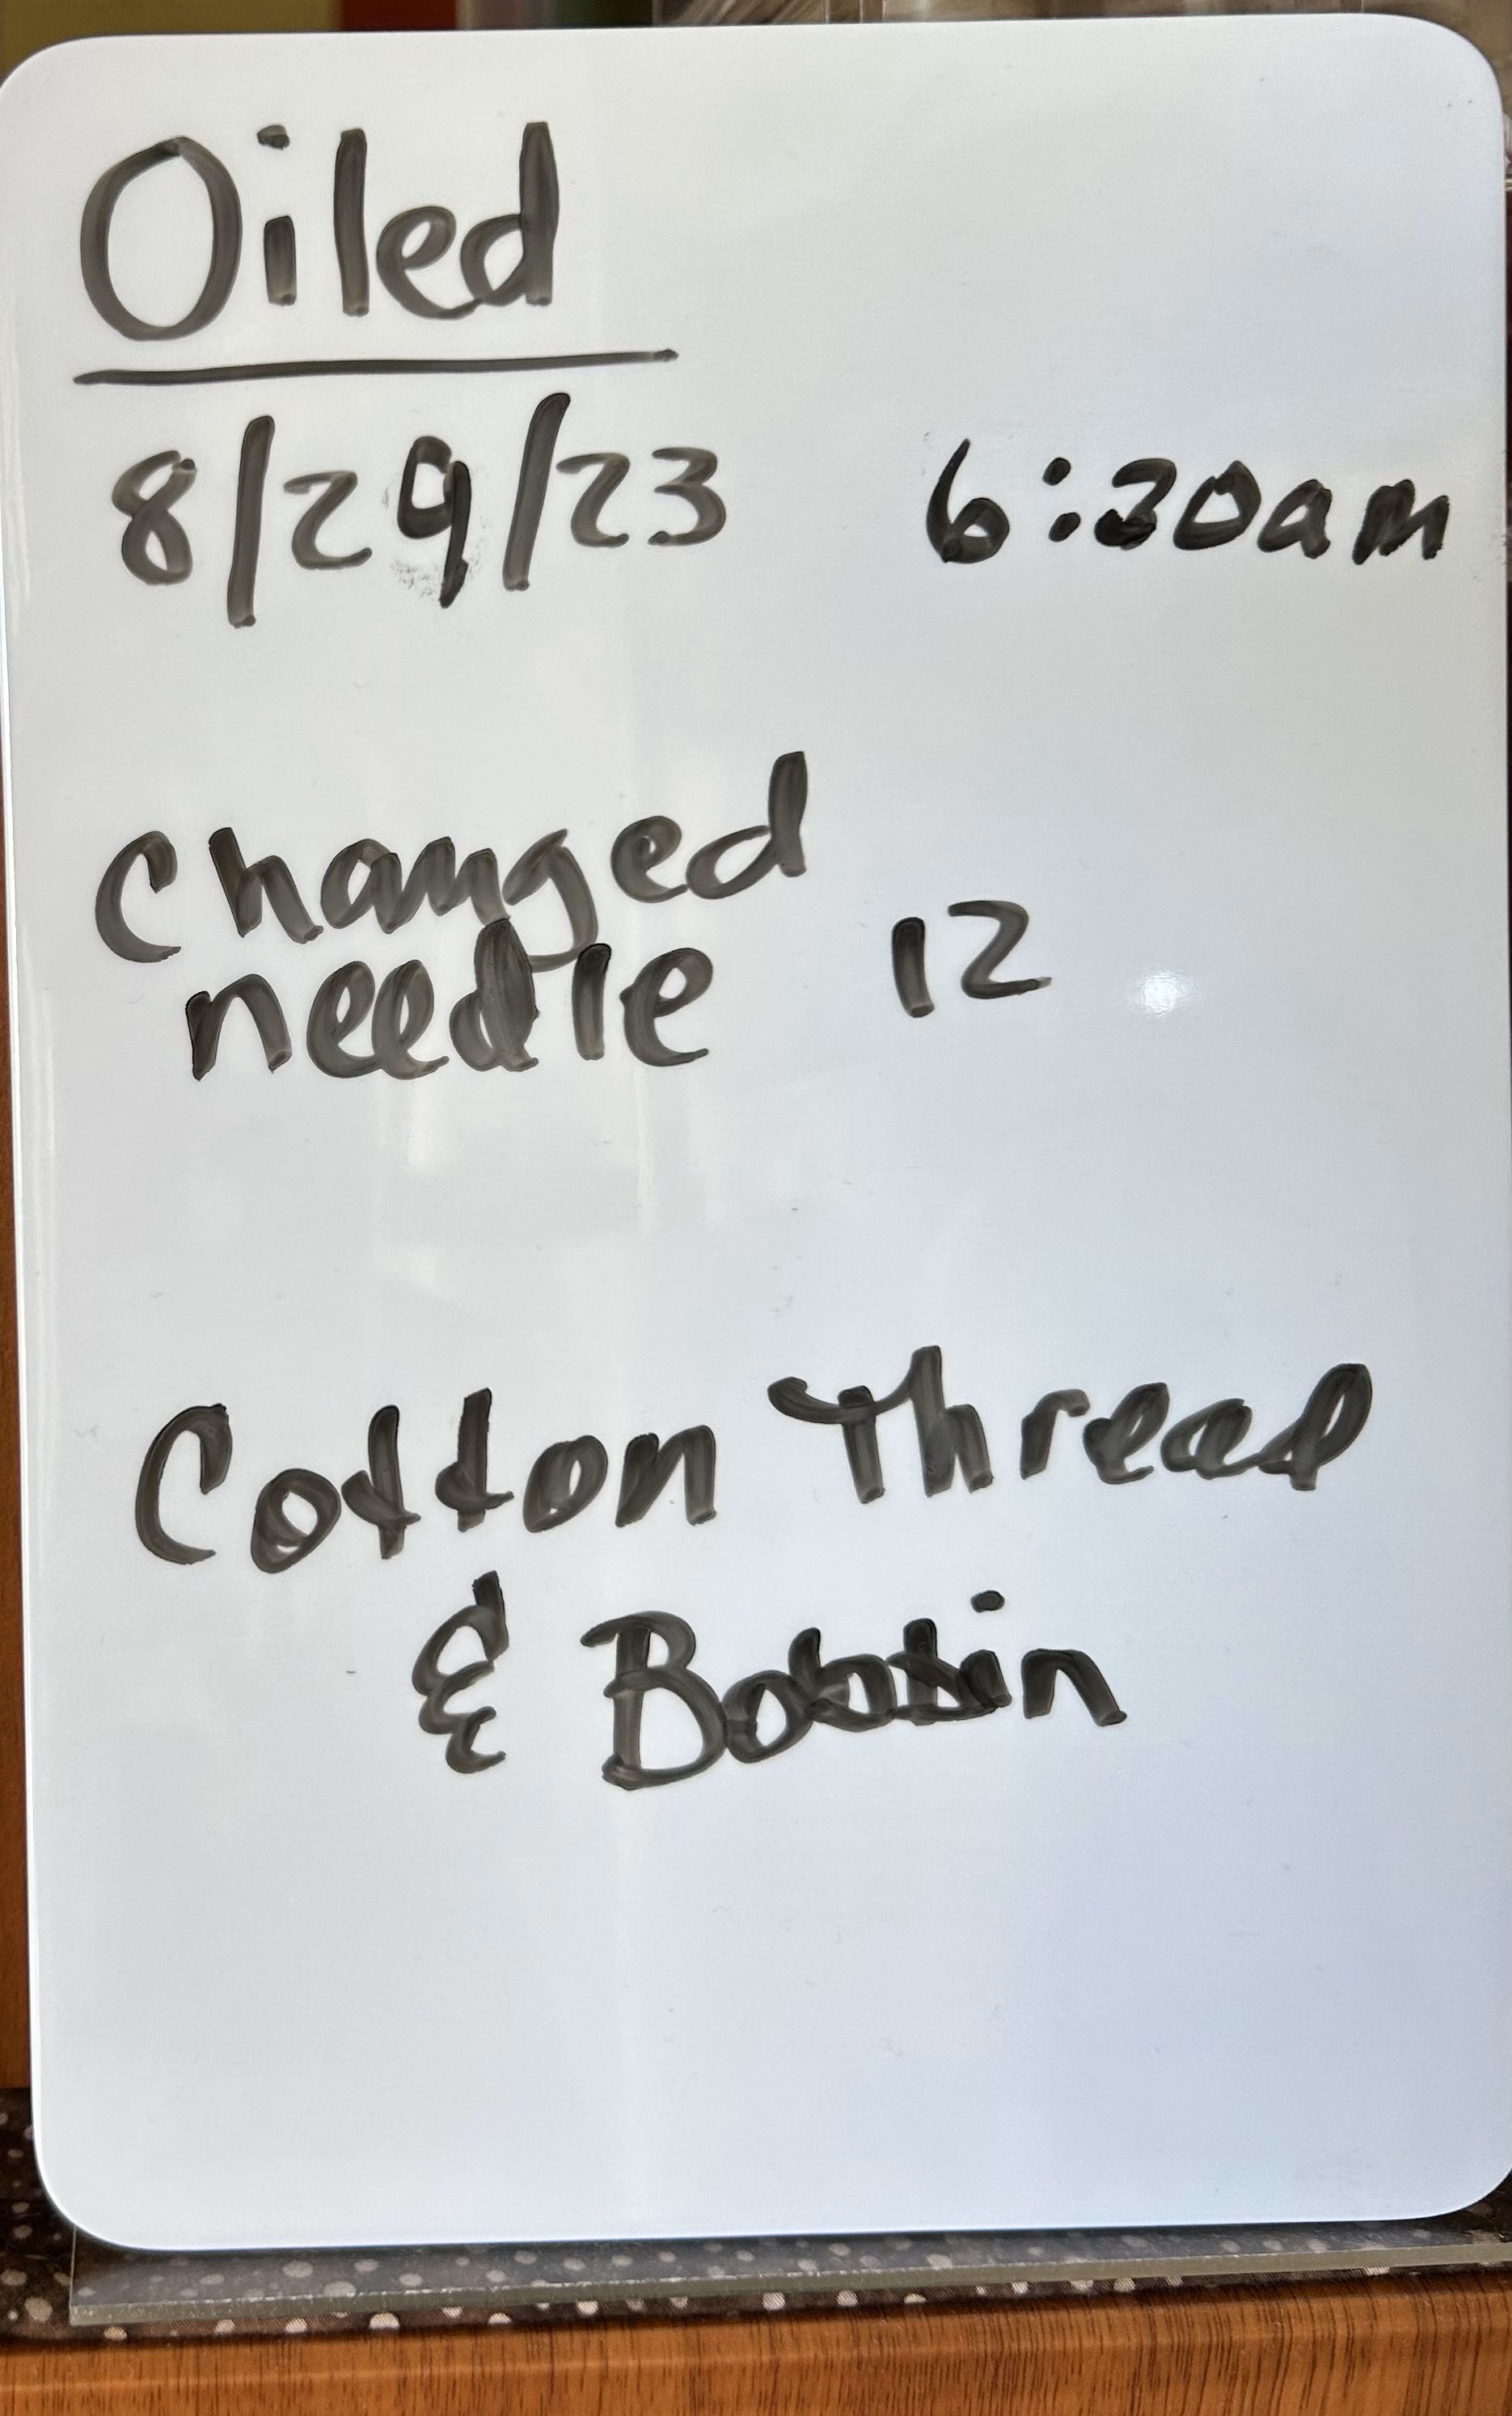 Oiled
8/29/23 6:30am
Changed
needle 12
Cotton Thread
& Bobbin